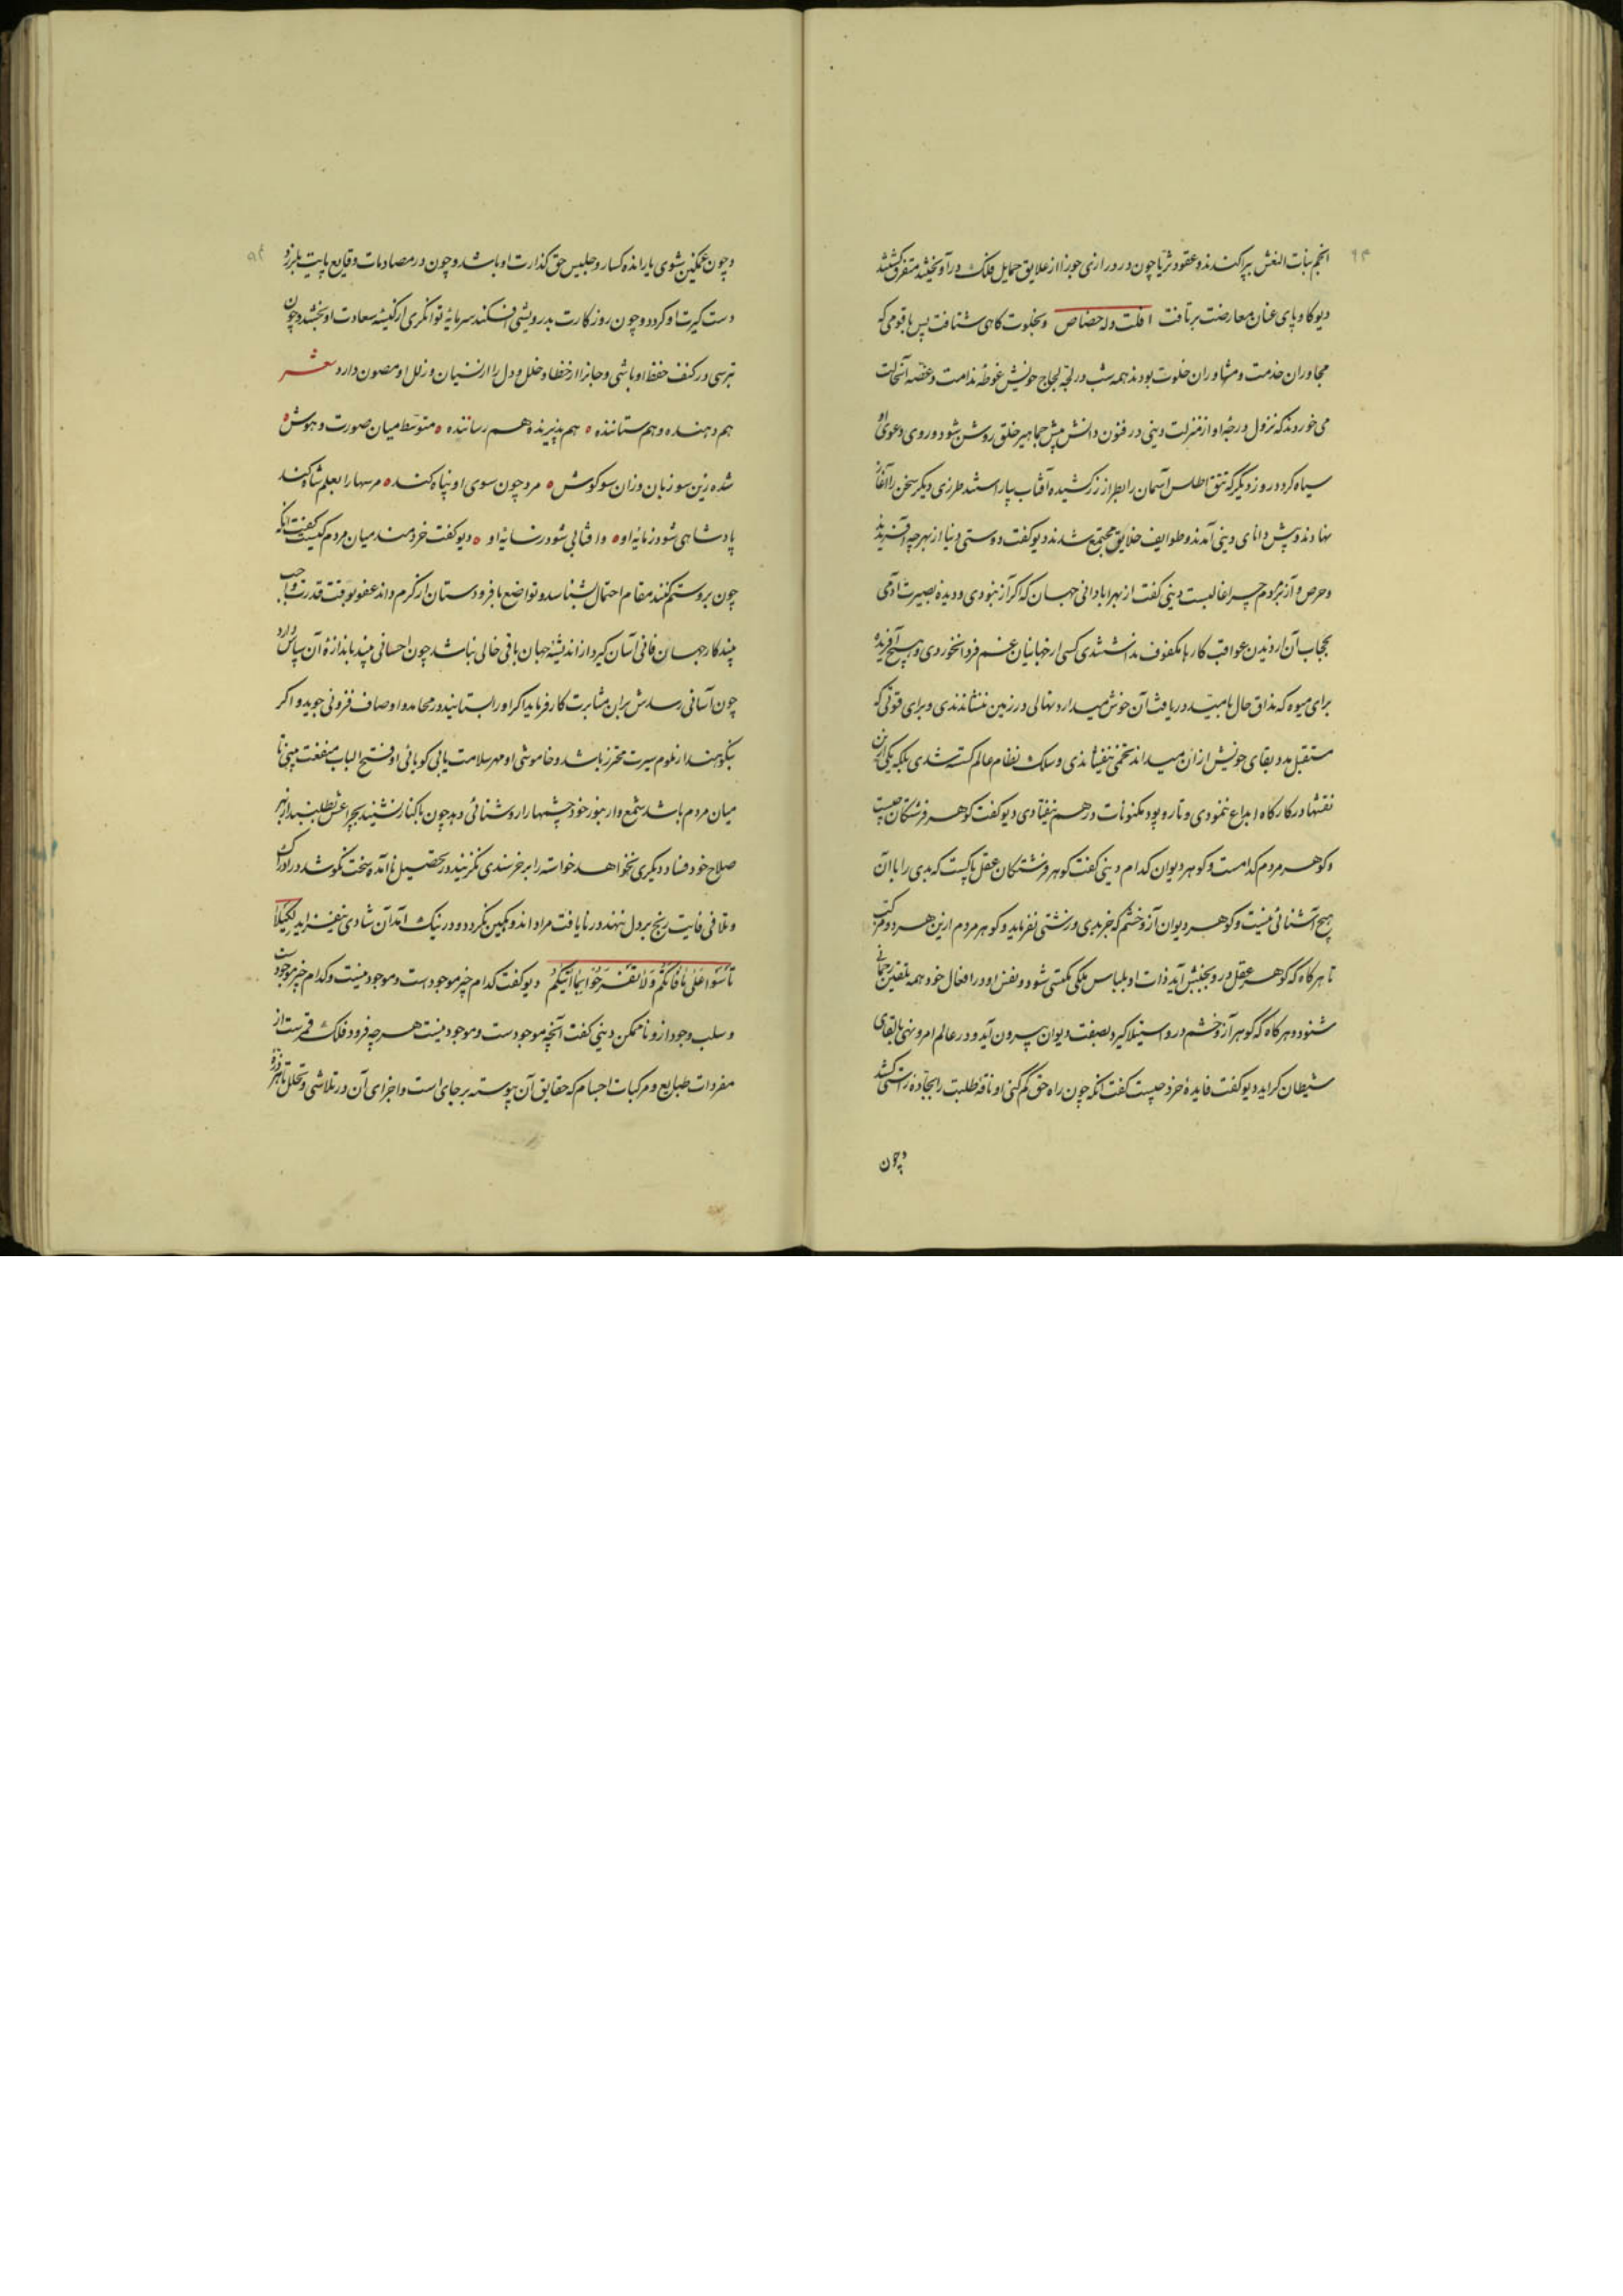 ۹۴
انجم بنات النعش بپراکندند و عقود ثریا چون در درازی جوزا از علایق حمایل فلک درآویختند متفرق گشتند
دیو کاو پای عنان معارضت برتافت افلت وله حصاص و بخلوت کاهی شتافت پس با قومی که
مجاوران خدمت و مشاوران خلوت بودند همه شب در لجهٔ لجاج خویش غوطهٔ ندامت و غصهٔ آنحالت
می خوردند که نزول درجهٔ او از منزلت دینی در فنون دانش پیش جماهیر خلق روشن شود و روی دعوی او
سیاه کردد روز دیکر که تتق اطلس آسمان را بطراز زرکشیده آفتاب بیاراستند طرزی دیکر سخن را آغاز
نهادند و پیش دانای دینی آمدند و طوایف خلایق مجتمع شدند دیو کفت دوستی دنیا از بهر چه آفریدند
و حرص و آز بر مردم چرا غالبست دینی کفت از بهر ابادانی جهان که اکر آز نبودی و دیده بصیرت ادمی
بحجاب آن از دیدن عواقب کارها مکفوف نداشتندی کسی از جهانیان غم فردا نخوردی و هیچ آفریده
برای میوه که مذاق حال بامید دریافت آن خوش میدارد نهالی در زمین ننشاندندی و برای قوتی که
مستقبل مدد بقای خویش از آن میداند تخمی نیفشاندی و سلک نظام عالم کسسته شدی بلکه یکی ازین
نقشها در کارکاه ابداع ننمودی و تار و پود مکنونات در هم نیفتادی دیو کفت کوهر فرشتکان چیست
و کوهر مردم کدامست و کوهر دیوان کدام دینی کفت کوهر فرشتکان عقل پاکست که بدی را با آن
هیچ آشنائی نیست و کوهر دیوان آز و خشم که جز بدی و زشتی نفرماید و کوهر مردم ازین هر دو مرکب
تا هرکاه که کوهر عقل درو بجنبش آید ذات او بلباس ملکی مکتسی شود و نفس او در افعال خود همه تلقین رحمانی
شنود و هرکاه که کوهر آز و خشم درو استیلا کیرد بصفت دیوان بیرون آید و در عالم امر و نهی بالقای
شیطان کراید دیو کفت فایدهٔ خرد چیست کفت انکه چون راه حق کم کنی او ناقهٔ طلبت را بجادهٔ راستی کشد
و چون
و چون غمکین شوی یار انده کسار و جلیس حق کذارت او باشد و چون در مصادمات وقایع پایت بلرزد
دست کیرت او کردد و چون روزکارت بدرویشی افکند سرمایهٔ توانکری از کیسهٔ سعادت او بخشد و چون
بترسی در کنف حفظ او باشی و جانرا از خطا و خلل و دل را از نسیان و زلل او مصون دارد شعر
هم دهنده و هم ستاننده ه هم پذیرنده هم رساننده ه متوسط میان صورت و هوش ه
شده زین سو زبان وزان سو کوش ه مرد چون سوی او پناه کند ه مر سها را بعلم شاه کند
پادشاهی شود ز مایهٔ او ه وافتابی شود ز سایهٔ او ه دیو کفت خردمند میان مردم کیست کفت انکه
چون برو ستم کنند مقام احتمال بشناسد و تواضع با فرودستان از کرم داند عفو بوقت قدرت واجب
بیند کار جهان فانی آسان کیرد از اندیشهٔ جهان باقی خالی نباشد چون احسانی بیند باندازهٔ آن سپاس دارد
چون آسانی رسدش بر ان مثابرت کار فرماید اکر او را بستایند در محامد اوصاف فزونی جوید و اکر
بنکوهند از ملوم سیرت محترز باشد و خاموشی او مهر سلامت یابی کویائی او فتح الباب منفعت بینی تا
میان مردم باشد شمع وار بنور خود چشمها را روشنائی دهد چون با کنار نشیند بچراغش طلبند از بهر
صلاح خود فساد دیکری نخواهد خواسته را بر خرسندی نکزیند در تحصیل ناآمده سخت نکوشد در ادراک
و تلافی فایت رنج بر دل ننهد در نایافت مراد اندوهکین نکردد و در نیک آمد آن شادی نیفزاید لکیلا
تأسوا علی ما فاتکم ولا تفرحوا بما آتیکم دیو کفت کدام چیز موجود است و موجود نیست و کدام چیز موجودست
و سلب وجود از و ناممکن دینی کفت آنچه موجودست و موجود نیست هر چه فرود فلک قمرست از
مفردات طبایع و مرکبات اجسام که حقایق آن پیوسته بر جای است و اجزای آن در تلاشی و تحلل تا هر ذره